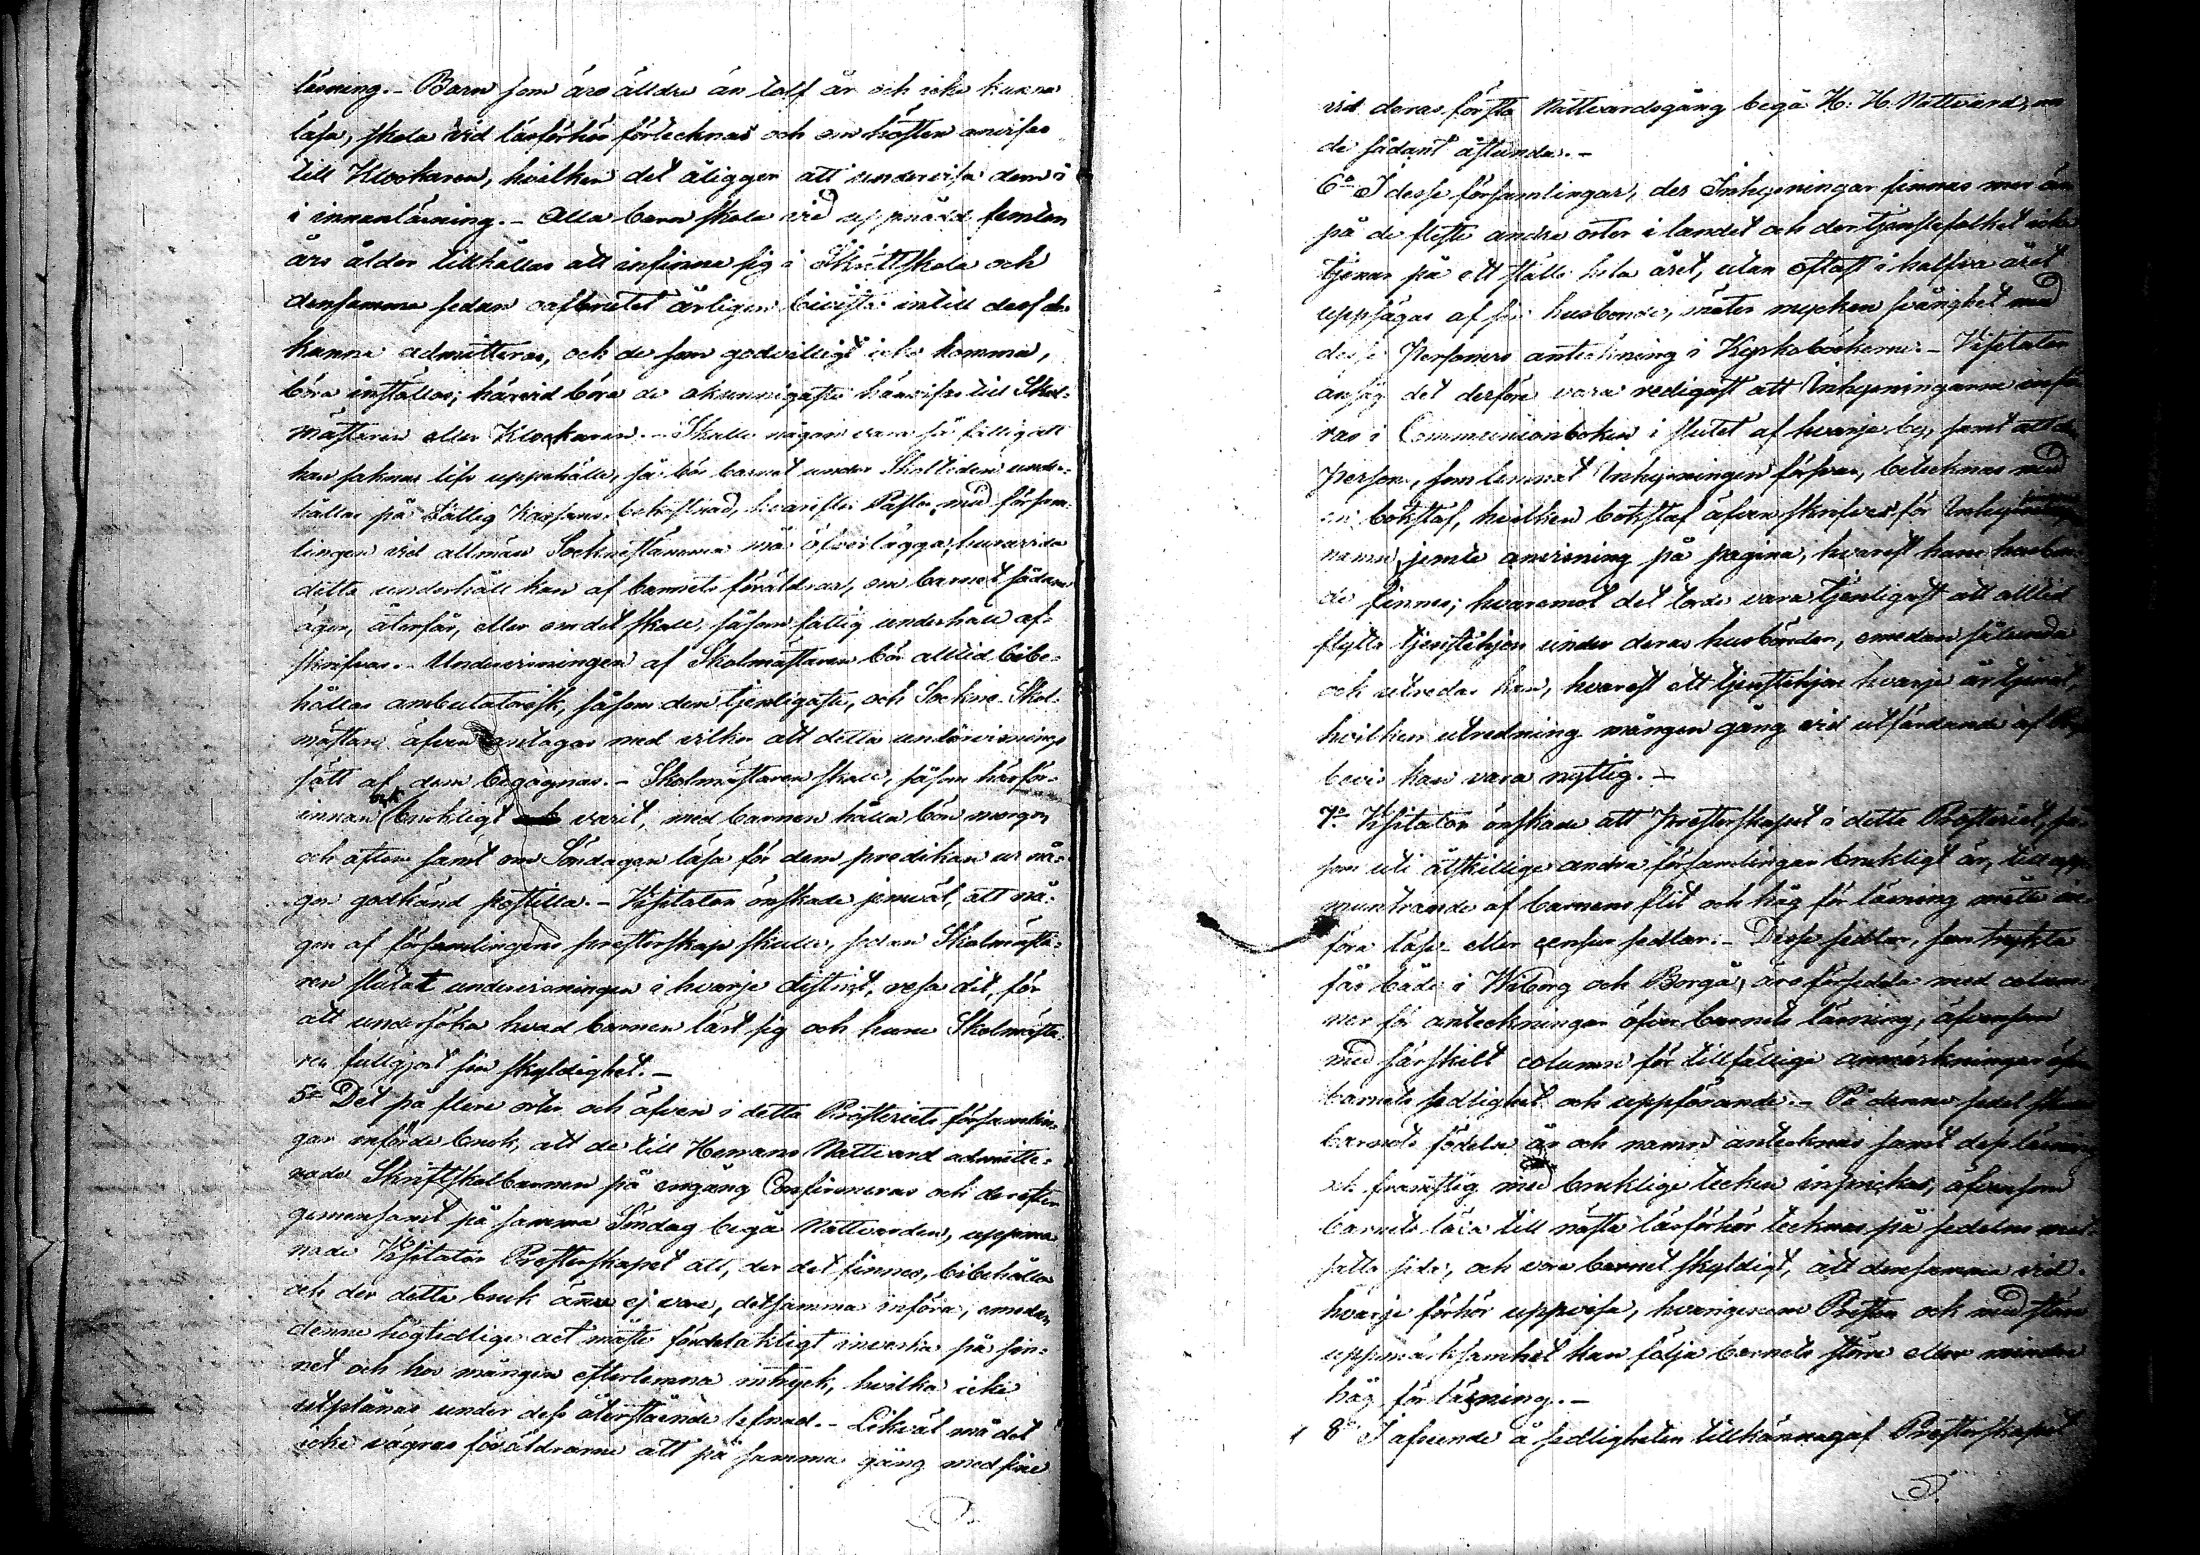 läsning. – Barn som äro älldre än tolf år och icke kunna
läsa, skola vid läsförhör förtecknas och om hösten anvisas
till Klockaren, hvilken det åligger att undervisa dem i
i innanläsning. – Alla barn skola vid uppnådd femton
års ålder tillhållas att infinna sig i Skriftskola och
densamma sedan oafbrutet årligen bivista intill dess de
kunna admitteras, och de som godvilligt icke komma,
böra inställas; härvid böra de okunnigaste hänvisas till Skol-
mästaren eller Klockaren. – Skulle någon vara så fattig att
han saknar lifs uppehälle, så bör barnet under Skoltiden under-
hållas på Fattig Kassans bekostnad, hvarefter Pastor med försam-
lingen vid allmän Socknestämma må öfverlägga, huruvida
detta underhåll kan af barnets föräldrar, om barnet sådana
äger, återfås, eller om det skall, såsom fattig underhåll af-
skrifvas. – Undervisningen af Skolmästaren bör alltid bibe-
hållas ambulatorisk, såsom den tjenligaste, och Sockne Skol-
mästare äfven antagas med vilkor att detta undervisnings
sätt af dem begagnas. – Skolmästaren skall, såsom härför-
innan brukligt varit, med barnen hålla bön morgon
och afton samt om Söndagen läsa för dem predikan ur nå-
gon godkänd postilla. – Visitator önskade jemväl, att nå-
gon af församlingens presterskap skulle, sedan Skolmästa-
ren slutat undervisningen i hvarje distrikt, resa dit, för
att undersöka hvad barnen lärt sig och huru Skolmästa-
ren fullgjort sin skyldighet. –
5o Det på flere orter och äfven i detta Prosteriets församlin-
gar införde bruk, att de till Herrans Nattvard admitte-
rade Skriftskolbarnen på engång Confirmeras och derefter
gemensamt på samma Söndag begå Nattvarden, uppma-
nade Visitator Presterskapet att, der det finnes, bibehålla
och der detta bruk ännu ej vore, detsamma införa, emedan
denna högtidliga act måste fördelaktigt inverka på sin-
net och hos mången efterlemna intryck, hvilka icke
utplånas under dess återstående lefnad. – Likväl må det
icke vägras föräldrarna att på samma gång med sine
vid deras första Nattvardsgång begå H: H. Nattvard, om
de sådant åstunda. –
6o I desse församlingar, der Inhysningar finnas mer än
på de fleste andra orter i landet och der tjenstefolket icke
tjenar på ett ställe hela året, utan oftast i halfva året
uppsägas af sin husbonde, möter mycken svårighet med
desse Personers anteckning i Kyrkoböckerne. – Visitator
ansåg det derföre vara redigast att Inhysningarna införas
ras i Communionboken i slutet af hvarje by, samt att den
Person, som lemnat Inhysningen försvar, betecknas med
en bokstaf, hvilken bokstaf äfven skrifves för
namn jemte anvisning på pagina, hvarest hans husbon-
de finnes; hvaremot det torde vara tjenligast att alltid
flytta tjenstehjon under deras husbönder, emedan sålunda
och utredas kan, hvarest ett tjenstehjon hvarje år tjenat,
hvilken utredning mången gång vid utfärdande af
bevis kan vara nyttig. –
7o Visitator önskade att Presterskapet i detta Prosteriet, så-
som uti åtskillige andra församlingar brukligt är, till upp-
muntrande af barnens flit och håg för läsning måtte in-
föra läse- eller censur sedlar. – Desse sedlar, som tryckta
fås både i Wiborg och Borgå, äro försedda med colum-
ner för anteckningar öfver barnets läsning, äfvensom
med särskilt column för tillfällige anmärkningar öfver
barnets sedlighet och uppförande. – På denna sedel skall
barnets födelse år och namn antecknas samt dess läsning
och framsteg med bruklige tecken inprickas, äfvensom
barnets läxa till nästa läsförhör tecknas på sedelns mot-
satta sida, och vore barnet skyldigt, att densamma vid
hvarje förhör uppvisa, hvarigenom Presten och med större
uppmärksamhet kan följa barnets större eller mindre
håg för läsning. –
8o I afseende å sedligheten tillkännagaf Presterskapet